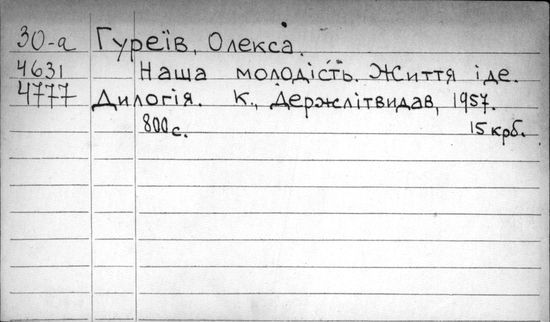 30-а Гуреїв, Олекса.
4631 Наша молодість. Життя іде.
4777 Дилогія. К., Держлітвидав, 1957.
800 с. 15 крб.